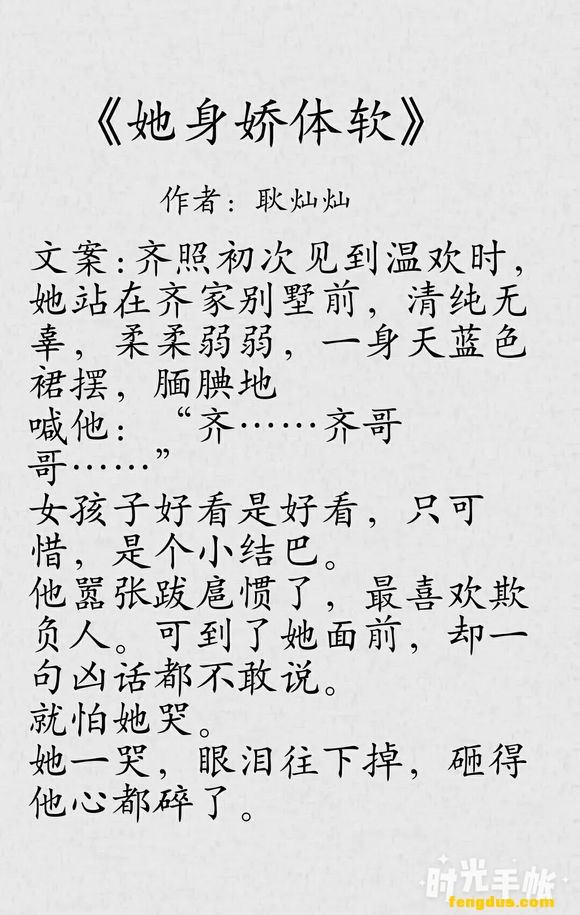 《她身娇体软》
作者：耿灿灿
文案：齐照初次见到温欢时，
她站在齐家别墅前，清纯无
辜，柔柔弱弱，一身天蓝色
裙摆，腼腆地
喊他：“齐……齐哥
哥……”
女孩子好看是好看，只可
惜，是个小结巴。
他嚣张跋扈惯了，最喜欢欺
负人。可到了她面前，却一
句凶话都不敢说。
就怕她哭。
她一哭，眼泪往下掉，砸得
他心都碎了。
时光手帐
fengdus.com